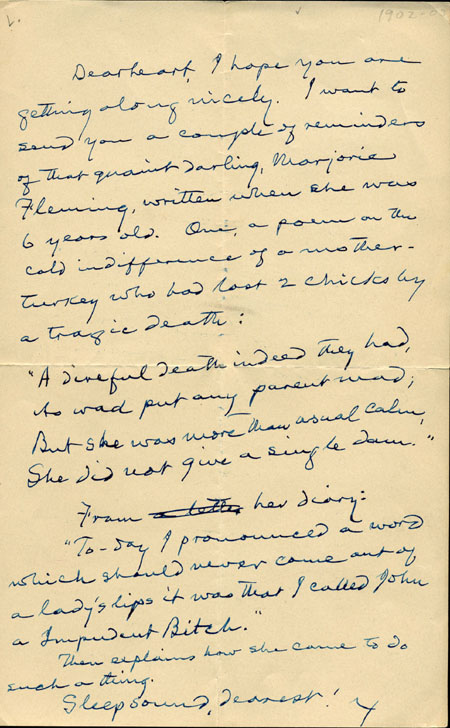 1902-0
Dearheart, I hope you are
getting along nicely. I want to
send you a couple of reminders
of that quaint darling, Marjorie
Fleming, written when she was
6 years old. One, a poem on the
cold indifference of a mother-
turkey who had lost 2 chicks by
a tragic death:
"A direful death indeed they had,
As wad put any parent mad;
But she was more than usual calm,
She did not give a single dam."
From a letter her diary:
"To-day I pronounced a word
which should never come out of
a lady's lips it was that I called John
a Impudent Bitch."
Then explains how she came to do
such a thing.
Sleep sound, dearest!